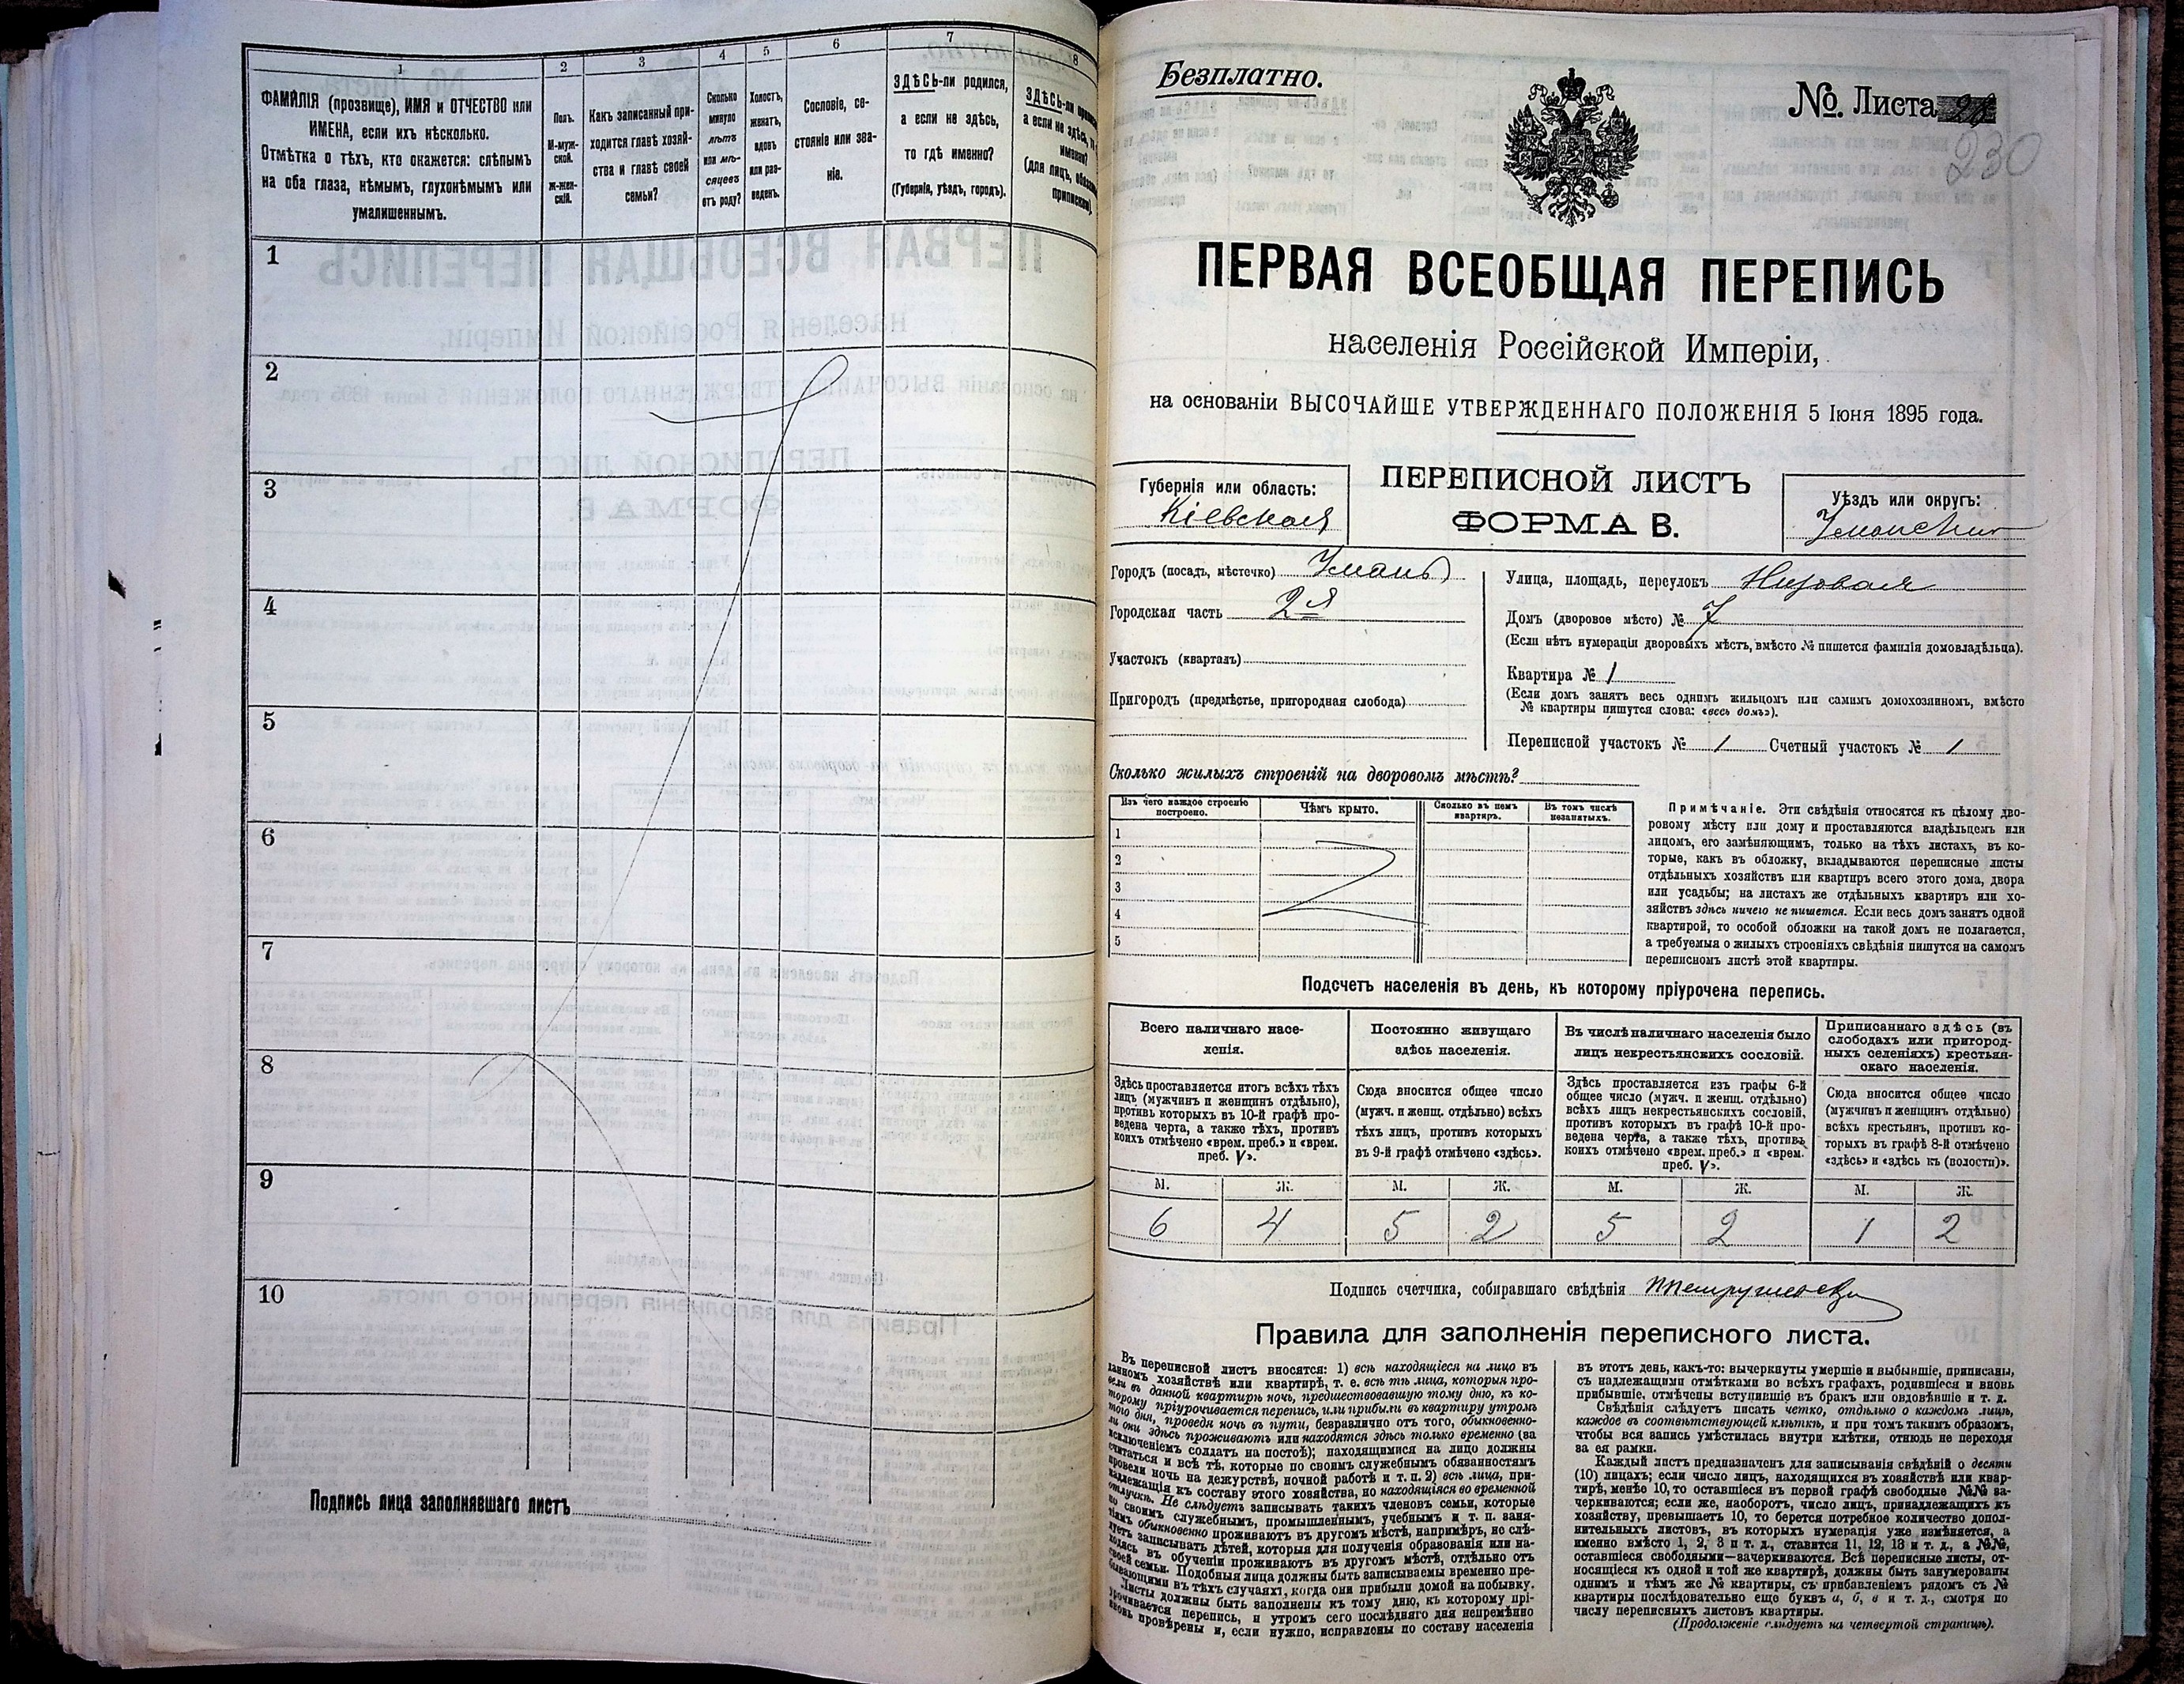 1
ФАМИЛІЯ (прозвище), ИМЯ и ОТЧЕСТВО или
ИМЕНА, если ихъ нѣсколько.
Отмѣтка о тѣхъ, кто окажется: слѣпымъ
на оба глаза, нѣмымъ, глухонѣмымъ или
умалишеннымъ.
2
Полъ.
М-муж-
ской.
ж-жен-
скій.
3
Какъ записанный при-
ходится главѣ хозяй-
ства и главѣ своей
семьи?
4
Сколько
минуло
лѣтъ
или мѣ-
сяцевъ
отъ роду?
5
Холостъ,
женатъ,
вдовъ
или раз-
веденъ.
6
Сословіе, со-
стояніе или зва-
ніе.
7
ЗДѢСЬ-ли родился,
а если не здѣсь,
то гдѣ именно?
(Губернія, уѣздъ, городъ).
8
ЗДѢСЬ-ли
а если не здѣсь,
(для лицъ,
1
2
3
4
5
6
7
8
9
10
Подпись лица заполнявшаго листъ
Безплатно.
№ Листа 28
230
ПЕРВАЯ ВСЕОБЩАЯ ПЕРЕПИСЬ
населенія Россійской Имперіи,
на основаніи ВЫСОЧАЙШЕ УТВЕРЖДЕННАГО ПОЛОЖЕНІЯ 5 Іюня 1895 года.
Губернія или область:
Кіевская
ПЕРЕПИСНОЙ ЛИСТЪ
ФОРМА В.
Уѣздъ или округъ:
Уманскій
Городъ (посадъ, мѣстечко) Умань
Городская часть 2я
Участокъ (кварталъ)
Пригородъ (предмѣстье, пригородная слобода)
Улица, площадь, переулокъ Низовая
Домъ (дворовое мѣсто) № 7
(Если нѣтъ нумераціи дворовыхъ мѣстъ, вмѣсто № пишется фамилія домовладѣльца).
Квартира № 1
(Если домъ занятъ весь однимъ жильцомъ или самимъ домохозяиномъ, вмѣсто
№ квартиры пишутся слова: «весь домъ»).
Переписной участокъ № 1 Счетный участокъ № 1
Сколько жилыхъ строеній на дворовомъ мѣстѣ?
Изъ чего каждое строеніе
построено.
Чѣмъ крыто.
Сколько въ немъ
квартиръ.
Въ томъ числѣ
незанятыхъ.
1
2
3
4
5
Примѣчаніе. Эти свѣдѣнія относятся къ цѣлому дво-
ровому мѣсту или дому и проставляются владѣльцемъ или
лицомъ, его замѣняющимъ, только на тѣхъ листахъ, въ ко-
торые, какъ въ обложку, вкладываются переписные листы
отдѣльныхъ хозяйствъ или квартиръ всего этого дома, двора
или усадьбы; на листахъ же отдѣльныхъ квартиръ или хо-
зяйствъ здѣсь ничего не пишется. Если весь домъ занятъ одной
квартирой, то особой обложки на такой домъ не полагается,
а требуемыя о жилыхъ строеніяхъ свѣдѣнія пишутся на самомъ
переписномъ листѣ этой квартиры.
Подсчетъ населенія въ день, къ которому пріурочена перепись.
Всего наличнаго насе-
ленія.
Здѣсь проставляется итогъ всѣхъ тѣхъ
лицъ (мужчинъ и женщинъ отдѣльно),
противъ которыхъ въ 10-й графѣ про-
ведена черта, а также тѣхъ, противъ
коихъ отмѣчено «врем. преб.» и «врем.
преб. V».
Постоянно живущаго
здѣсь населенія.
Сюда вносится общее число
(мужч. и женщ. отдѣльно) всѣхъ
тѣхъ лицъ, противъ которыхъ
въ 9-й графѣ отмѣчено «здѣсь».
Въ числѣ наличнаго населенія было
лицъ некрестьянскихъ сословій.
Здѣсь проставляется изъ графы 6-й
общее число (мужч. и женщ. отдѣльно)
всѣхъ лицъ некрестьянскихъ сословій,
противъ которыхъ въ графѣ 10-й про-
ведена черта, а также тѣхъ, противъ
коихъ отмѣчено «врем. преб.» и «врем.
преб. V».
Приписаннаго здѣсь (въ
слободахъ или пригород-
ныхъ селеніяхъ) крестьян-
скаго населенія.
Сюда вносится общее число
(мужчинъ и женщинъ отдѣльно)
всѣхъ крестьянъ, противъ ко-
торыхъ въ графѣ 8-й отмѣчено
«здѣсь» и «здѣсь къ (волости)».
М. Ж. М. Ж. М. Ж. М. Ж.
6 4 5 2 5 2 1 2
Подпись счетчика, собиравшаго свѣдѣнія
Правила для заполненія переписного листа.
Въ переписной листъ вносятся: 1) всѣ находящіеся на лицо въ
данномъ хозяйствѣ или квартирѣ, т. е. всѣ тѣ лица, которыя про-
вели въ данной квартирѣ ночь, предшествовавшую тому дню, къ ко-
торому пріурочивается перепись, или прибыли въ квартиру утромъ
того дня, проведя ночь въ пути, безразлично отъ того, обыкновенно-
ли они здѣсь проживаютъ или находятся здѣсь только временно (за
исключеніемъ солдатъ на постоѣ); находящимися на лицо должны
считаться и всѣ тѣ, которые по своимъ служебнымъ обязанностямъ
провели ночь на дежурствѣ, ночной работѣ и т. п. 2) всѣ лица, при-
надлежащія къ составу этого хозяйства, но находящіяся во временной
отлучкѣ. Не слѣдуетъ записывать такихъ членовъ семьи, которые
по своимъ служебнымъ, промышленнымъ, учебнымъ и т. п. заня-
тіямъ обыкновенно проживаютъ въ другомъ мѣстѣ, напримѣръ, не слѣ-
дуетъ записывать дѣтей, которыя для полученія образованія или на-
ходясь въ обученіи проживаютъ въ другомъ мѣстѣ, отдѣльно отъ
своей семьи. Подобныя лица должны быть записываемы временно пре-
бывающими въ тѣхъ случаяхъ, когда они прибыли домой на побывку.
Листы должны быть заполнены къ тому дню, къ которому прі-
урочивается перепись, и утромъ сего послѣдняго дня непремѣнно
вновь провѣрены и, если нужно, исправлены по составу населенія
въ этотъ день, какъ-то: вычеркнуты умершіе и выбывшіе, приписаны,
съ надлежащими отмѣтками во всѣхъ графахъ, родившіеся и вновь
прибывшіе, отмѣчены вступившіе въ бракъ или овдовѣвшіе и т. д.
Свѣдѣнія слѣдуетъ писать четко, отдѣльно о каждомъ лицѣ,
каждое въ соотвѣтствующей клѣткѣ, и при томъ такимъ образомъ,
чтобы вся запись умѣстилась внутри клѣтки, отнюдь не переходя
за ея рамки.
Каждый листъ предназначенъ для записыванія свѣдѣній о десяти
(10) лицахъ; если число лицъ, находящихся въ хозяйствѣ или квар-
тирѣ, менѣе 10, то оставшіеся въ первой графѣ свободные №№ за-
черкиваются; если же, наоборотъ, число лицъ, принадлежащихъ къ
хозяйству, превышаетъ 10, то берется потребное количество допол-
нительныхъ листовъ, въ которыхъ нумерація уже измѣняется, а
именно вмѣсто 1, 2, 3 и т. д., ставится 11, 12, 13 и т. д., а №№,
оставшіеся свободными—зачеркиваются. Всѣ переписные листы, от-
носящіеся къ одной и той же квартирѣ, должны быть занумерованы
однимъ и тѣмъ же № квартиры, съ прибавленіемъ рядомъ съ №
квартиры послѣдовательно еще буквъ а, б, в и т. д., смотря по
числу переписныхъ листовъ квартиры.
(Продолженіе слѣдуетъ на четвертой страницѣ).